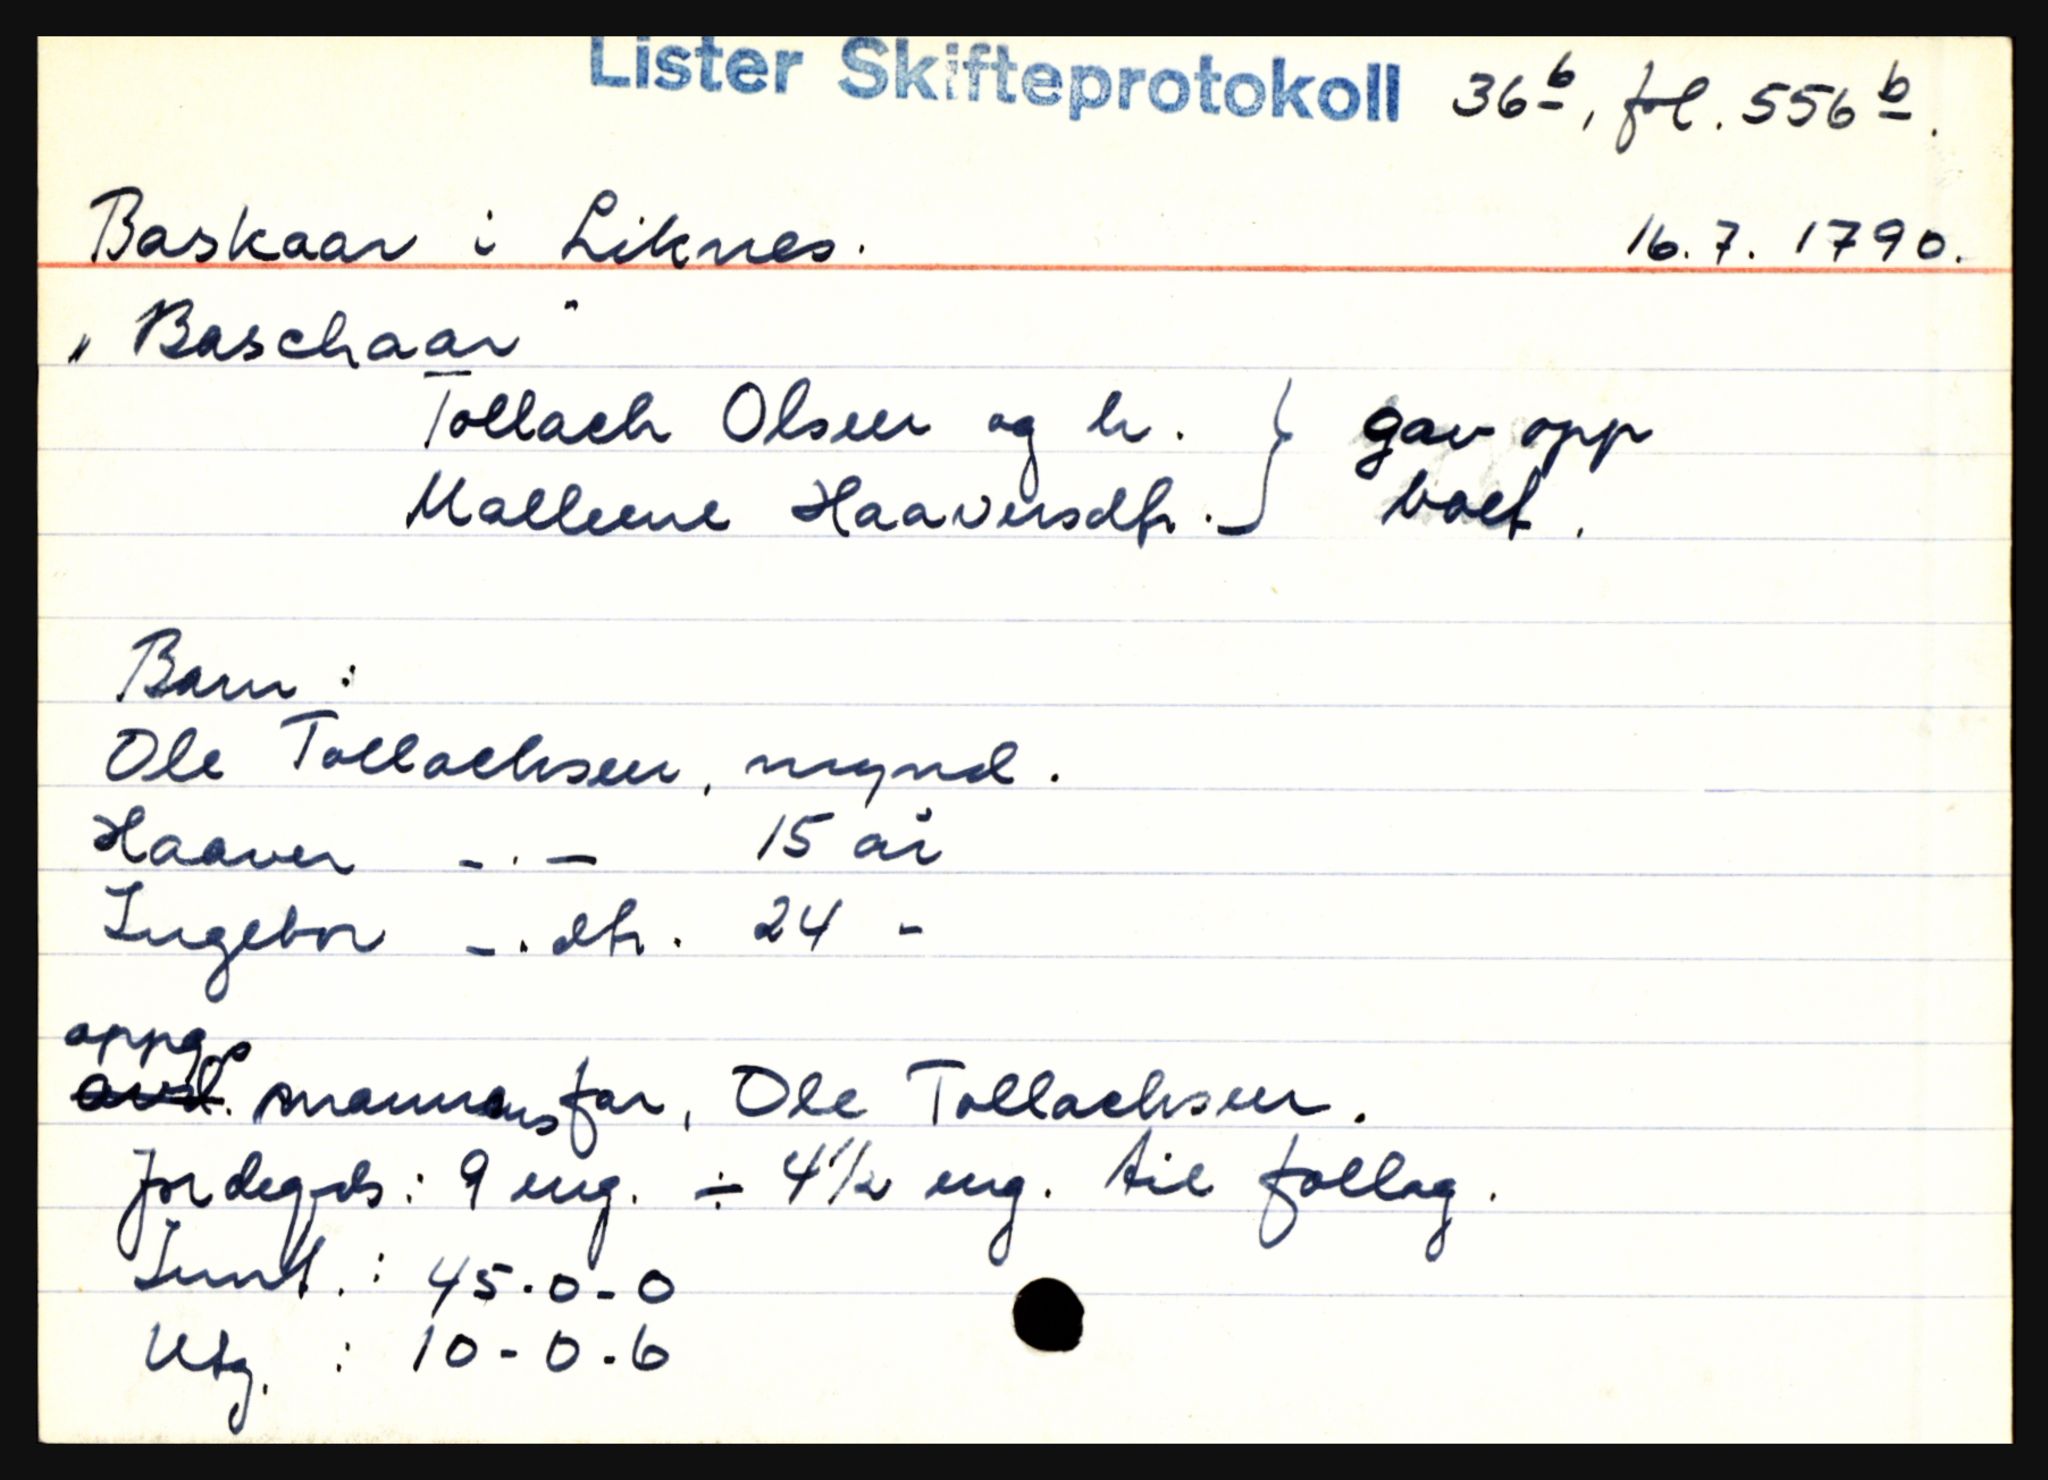 Lister Skifteprotokoll 36b, fol. 556b.
Baskaar i Liknes. 16.7.1790.
„Baschaar"
Tollach Olsen og h. } gav opp
Malleene Haaversdtr. } boet.
Barn:
Ole Tollachsen, mynd.
Haaver -.- 15 år
Ingebor -.dtr. 24 -
oppg.
avd. mannens far, Ole Tollachsen.
Jordegods: 9 eng. ÷ 4 1/2 eng. til follog.
Innt.: 45-0-0
Utg.: 10-0-6